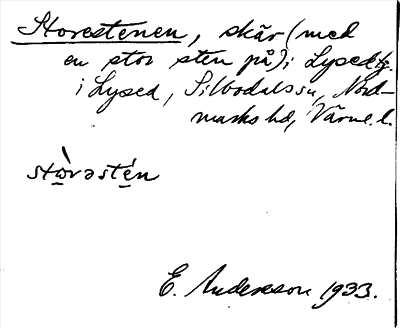 Storestenen, skär (med
en stor sten på) i Lysedtg.
i Lysed, Silbodalssn, Nord-
marks hd, Värml. l.
stòrəstén
E. Andersson 1933.